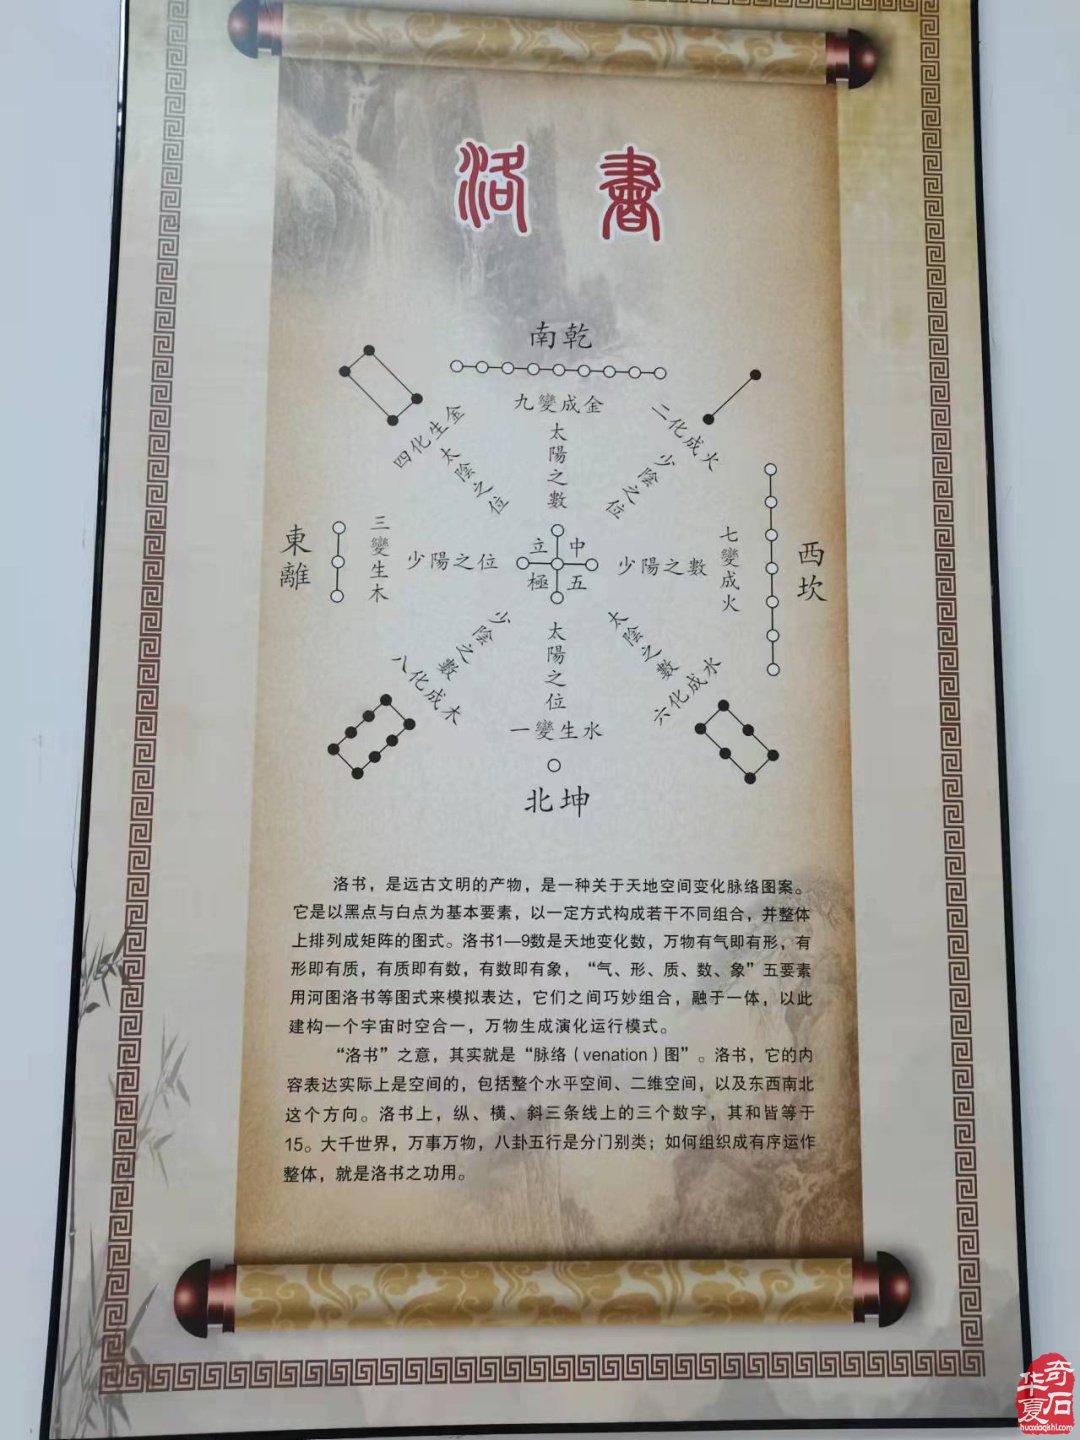 洛書
南乾
九變成金
太陽之數
四化生金
太陰之位
二化成火
少陰之位
東離
三變生木
少陽之位
立極
中五
少陽之數
七變成火
西坎
少陰之數
八化成木
太陽之位
一變生水
太陰之數
六化成水
北坤
洛书，是远古文明的产物，是一种关于天地空间变化脉络图案。
它是以黑点与白点为基本要素，以一定方式构成若干不同组合，并整体
上排列成矩阵的图式。洛书1—9数是天地变化数，万物有气即有形，有
形即有质，有质即有数，有数即有象，“气、形、质、数、象”五要素
用河图洛书等图式来模拟表达，它们之间巧妙组合，融于一体，以此
建构一个宇宙时空合一，万物生成演化运行模式。
“洛书”之意，其实就是“脉络（venation）图”。洛书，它的内
容表达实际上是空间的，包括整个水平空间、二维空间，以及东西南北
这个方向。洛书上，纵、横、斜三条线上的三个数字，其和皆等于
15。大千世界，万事万物，八卦五行是分门别类；如何组织成有序运作
整体，就是洛书之功用。
华夏奇石
huaxiaqishi.com